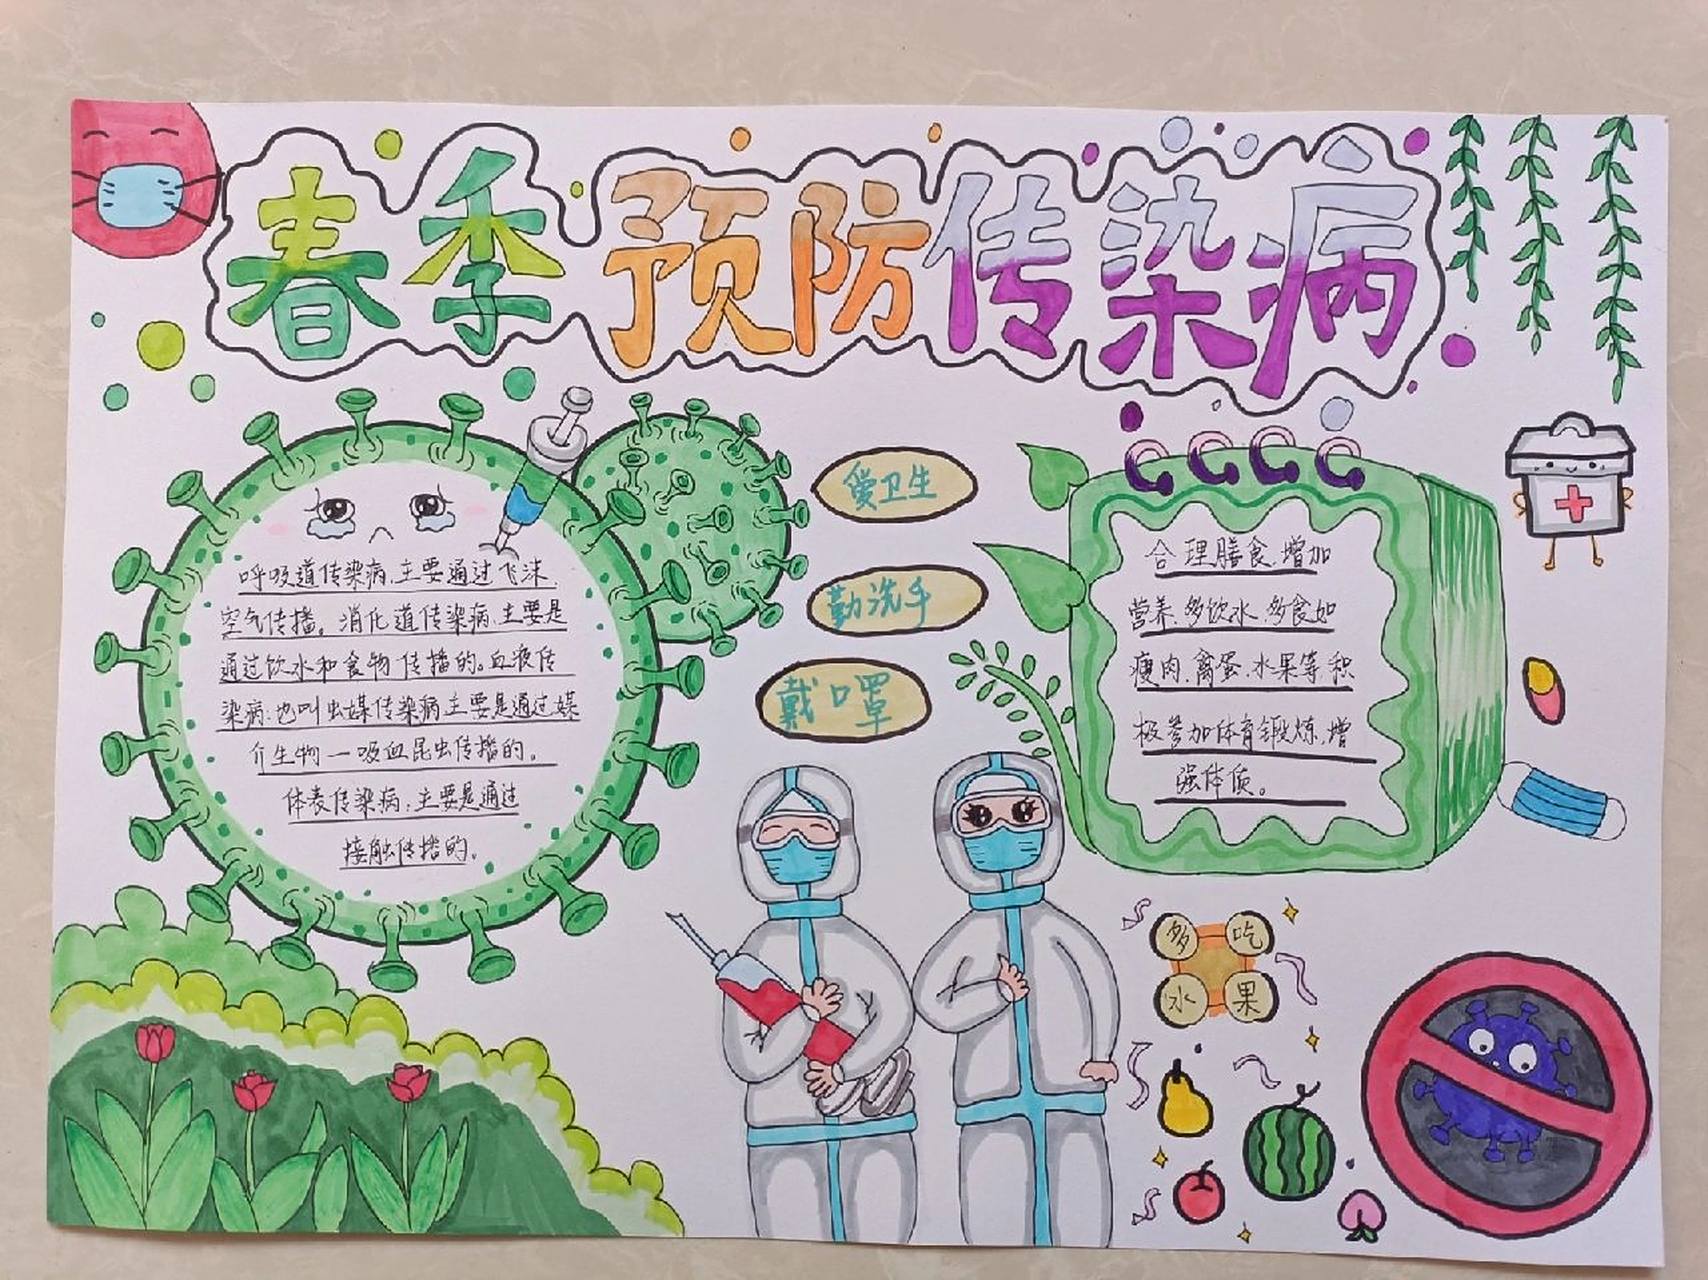 春季预防传染病
呼吸道传染病,主要通过飞沫,
空气传播。消化道传染病,主要是
通过饮水和食物传播的。血液传
染病:也叫虫媒传染病,主要是通过媒
介生物一吸血昆虫传播的。
体表传染病:主要是通过
接触传播的。
爱卫生
勤洗手
戴口罩
合理膳食,增加
营养,多饮水,多食如
瘦肉,禽蛋,水果等,积
极参加体育锻炼,增
强体质。
多吃
水果